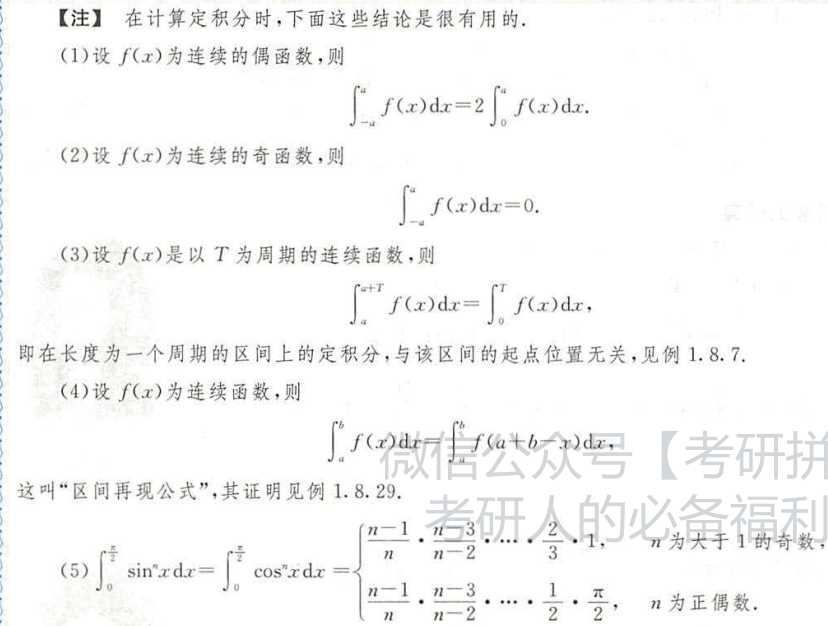 【注】 在计算定积分时,下面这些结论是很有用的.
(1)设 f(x)为连续的偶函数,则
∫_{-a}^{a} f(x)dx=2∫_{0}^{a} f(x)dx.
(2)设 f(x)为连续的奇函数,则
∫_{-a}^{a} f(x)dx=0.
(3)设 f(x)是以 T 为周期的连续函数,则
∫_{a}^{a+T} f(x)dx=∫_{0}^{T} f(x)dx,
即在长度为一个周期的区间上的定积分,与该区间的起点位置无关,见例 1.8.7.
(4)设 f(x)为连续函数,则
∫_{a}^{b} f(x)dx=∫_{a}^{b} f(a+b-x)dx,
微信公众号【考研拼
这叫“区间再现公式”,其证明见例 1.8.29.
考研人的必备福利
(5)∫_{0}^{π/2} sin^n xdx=∫_{0}^{π/2} cos^n xdx={ (n-1)/n · (n-3)/(n-2) · … · 2/3 · 1, n 为大于 1 的奇数,
(n-1)/n · (n-3)/(n-2) · … · 1/2 · π/2, n 为正偶数.